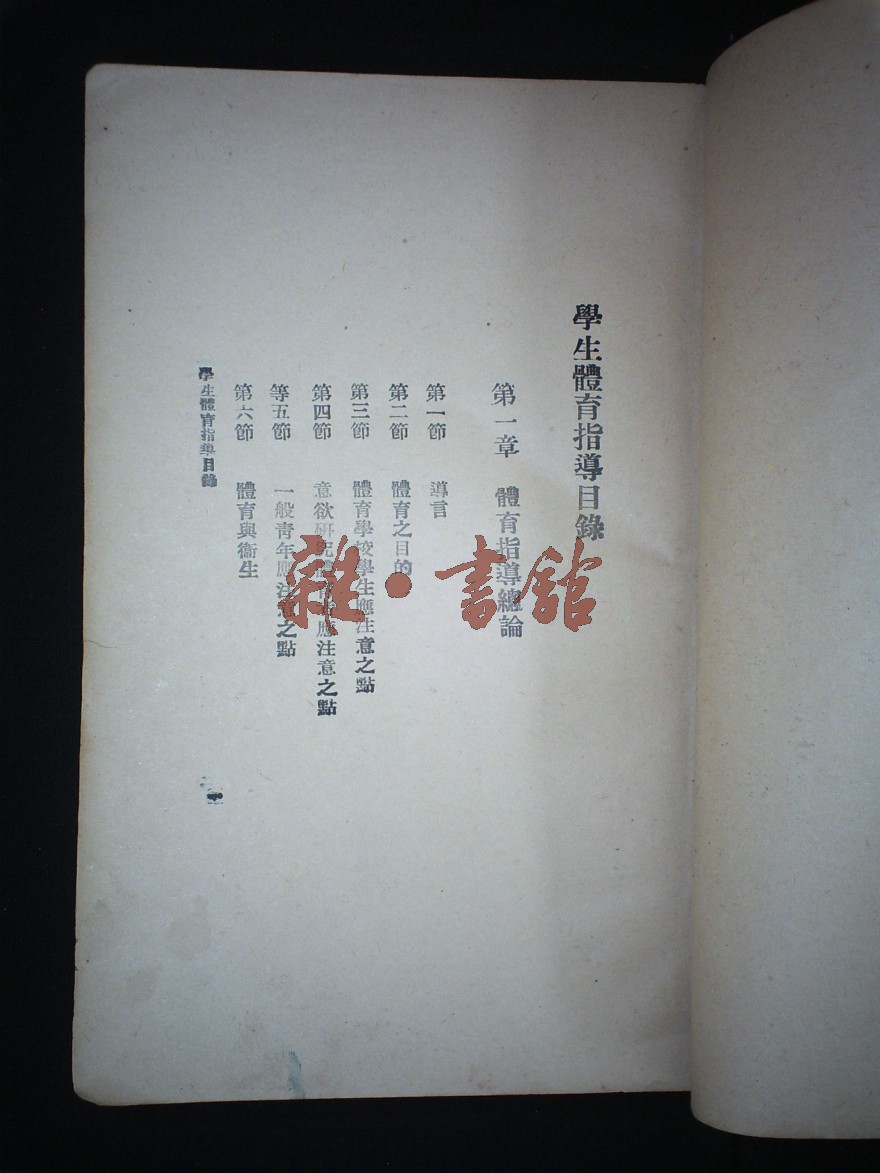 學生體育指導目錄
第一章 體育指導總論
第一節 導言
第二節 體育之目的
第三節 體育學校學生應注意之點
第四節 意欲研究體育者應注意之點
等五節 一般青年應注意之點
第六節 體育與衞生
學生體育指導目錄
雜·書館